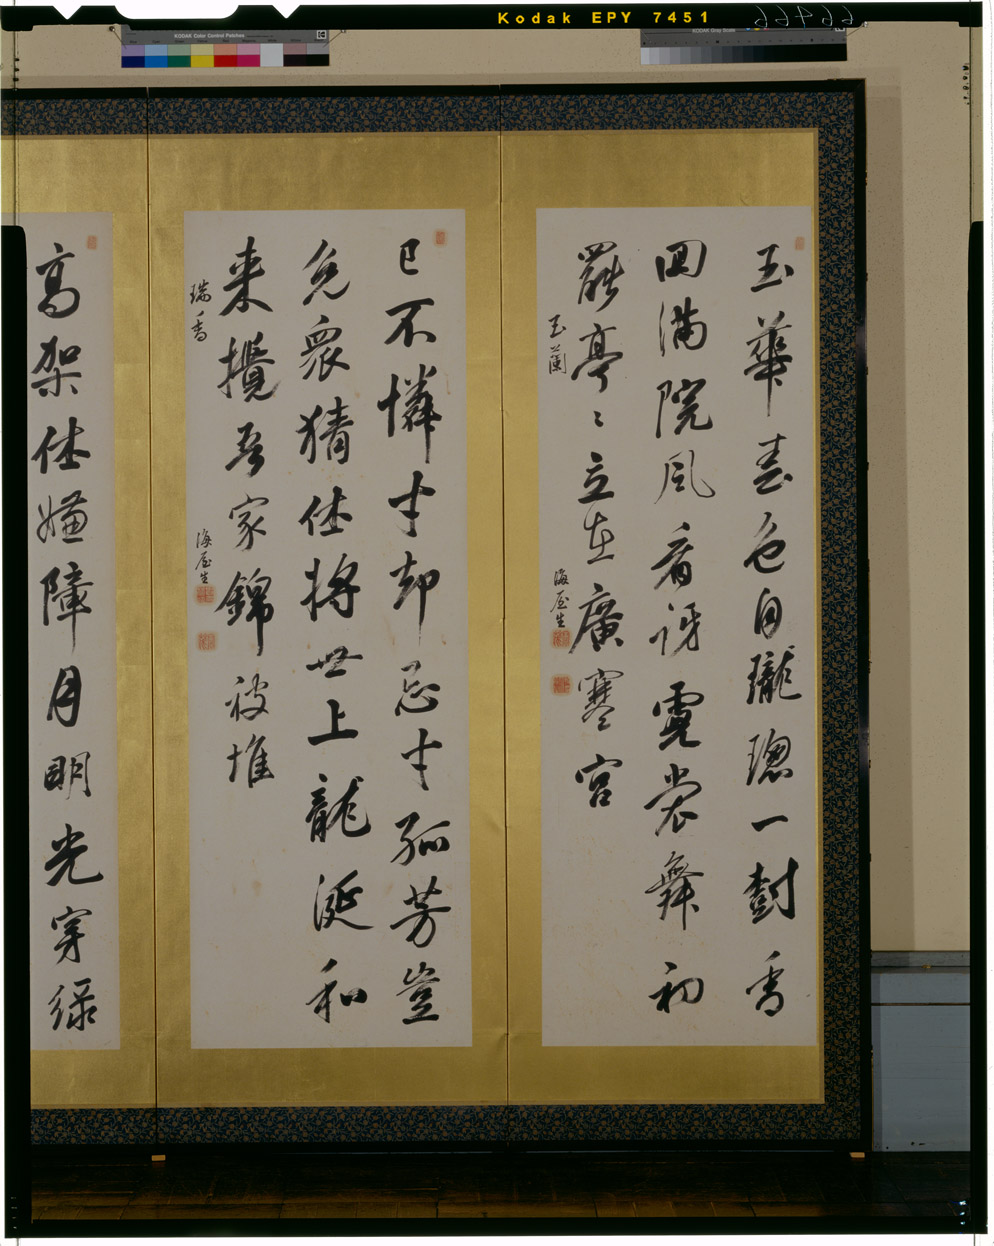 Kodak EPY 7451
66466
KODAK Color Control Patches
KODAK Gray Scale
玉華春色自瓏璁一尌香
回満院風看訝霓裳舞初
罷亭々立在廣寒宮
玉蘭
海屋生
已不憐才却忌才孤芳豈
免衆猜休将世上龍涎和
来攪吾家錦被堆
瑞香
海屋生
高架休嫌障月明光穿緑